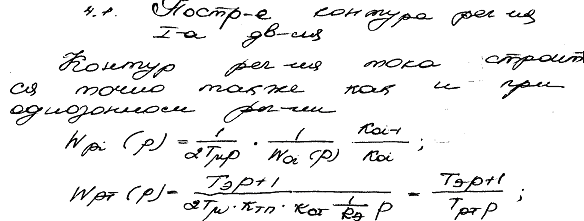 4.1. Постр-е контура рег-ия
I-а дв-ия
Контур рег-ия тока строит
ся точно также как и при
однозонном рег-ии
Wрi (p) = 1/(2Tμp) · 1/(Woi (p)) · Koi-1/Koi ;
Wрт (p) = (Tэp+1)/(2Tμ · Kтп · Kот 1/Rэ p) = (Tэp+1)/(Tрт p) ;